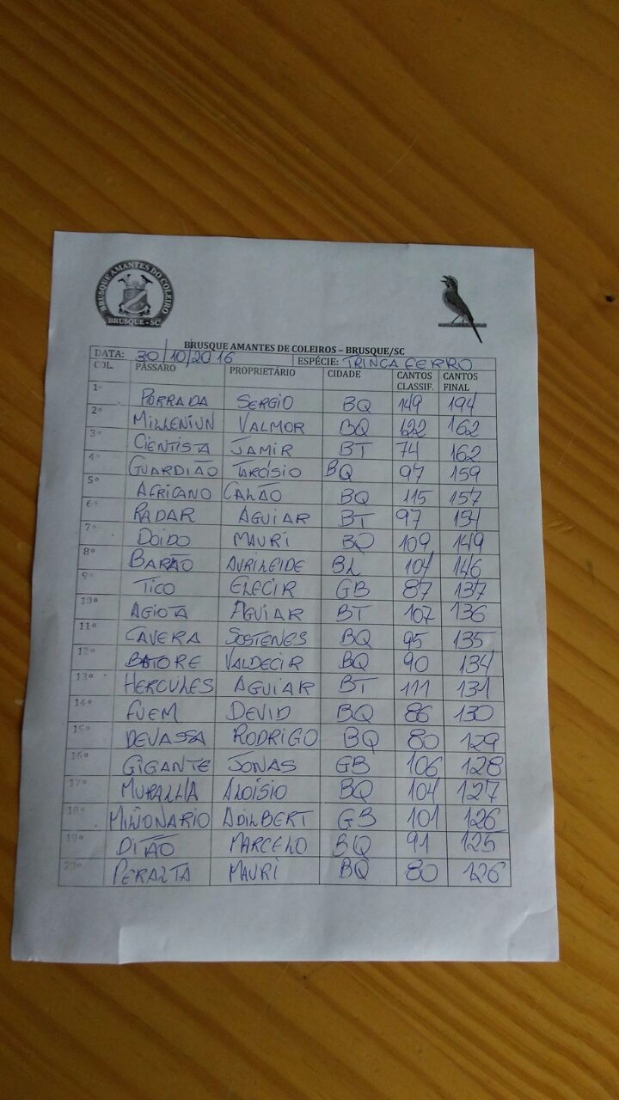 BRUSQUE AMANTES DO COLEIRO
BRUSQUE - SC
BRUSQUE AMANTES DE COLEIROS – BRUSQUE/SC
DATA: 30/10/2016 ESPÉCIE: TRINCA FERRO
COL. PÁSSARO PROPRIETÁRIO CIDADE CANTOS CLASSIF. CANTOS FINAL
1º PORRADA SERGIO BQ 149 194
2º MILLENIUN VALMOR BQ 122 162
3º CIENTISTA JAMIR BT 74 162
4º GUARDIÃO TARCÍSIO BQ 97 159
5º AFRICANO CALÃO BQ 115 157
6º RADAR AGUIAR BT 97 154
7º DOIDO MAURI BQ 109 149
8º BARÃO AURILEIDE BL 104 146
9º TICO ELECIR GB 87 137
10º AGIOTA AGUIAR BT 107 136
11º CAVERA SOSTENES BQ 95 135
12º BATORE VALDECIR BQ 90 134
13º HERCULES AGUIAR BT 111 131
14º FUEM DEVID BQ 86 130
15º DEVASSA RODRIGO BQ 80 129
16º GIGANTE JONAS GB 106 128
17º MURALHA ALOÍSIO BQ 104 127
18º MILIONARIO ADILBERT GB 101 126
19º DITÃO MARCELO BQ 91 125
20º PERALTA MAURI BQ 80 126